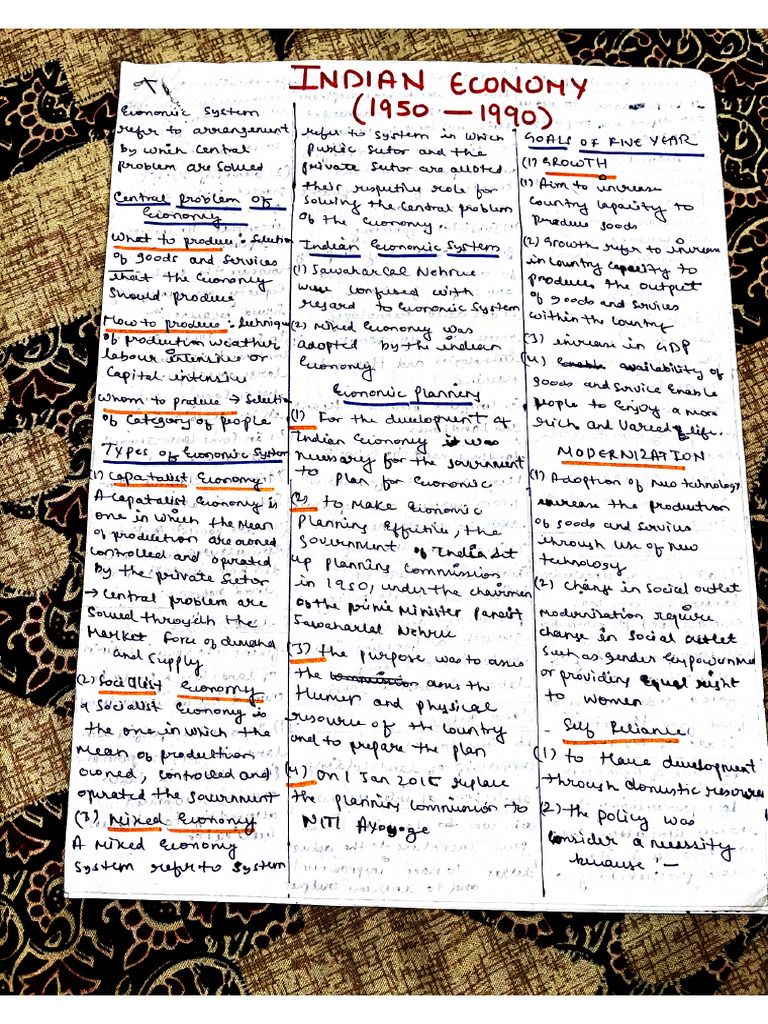 INDIAN ECONOMY
(1950 — 1990)
Economic System
refer to arrangement
by which central
problem are solved
Central problem of
Economy
What to produce : Selution
of goods and services
that the Economy
should produce
How to produce : technique
of production weather
labour intensive or
Capital intensive
Whom to produce → Selution
of category of people
Types of Economic System
1) Capatalist Economy
A Capatalist Economy is
one in which the mean
of production are owned
controlled and operated
by the private sector
→ Central problem are
Solved through the
Market force of demand
and supply
(2) Socialist Economy
A Socialist Economy is
the one in which the
mean of production
owned, controlled and
operated the government
(3) Mixed Economy
A Mixed Economy
System refer to System
refer to system in which
public sector and the
private sector are alloted
their respective role for
solving the central problem
of the Economy.
Indian Economic System
(1) Jawaharlal Nehrue
were confused with
regard to Economic System
(2) Mixed Economy was
adopted by the indian
Economy
Economic Planning
(1) For the development of
Indian Economy it was
necessary for the government
to plan for Economic
(2) to make Economic
planning Effective, the
government of India set
up planning commission
in 1950, under the chairman
of the prime Minister pandit
Jawaharlal Nehru
(3) the purpose was to asses
the commission asses the
Human and physical
resource of the country
and to prepare the plan
(4) on 1 Jan 2015 replace
the planning commission to
NITI Ayoyoge
GOALS OF FIVE YEAR
(1) GROWTH
(1) Aim to increase
country capacity to
produce goods
(2) Growth refer to increase
in country capacity to
produces the output
of goods and services
within the country
(3) increase in GDP
(4) Enable availability of
goods and service Enable
people to Enjoy a more
rich and Varied of life.
MODERNIZATION
(1) Adoption of new technology
increase the production
of goods and services
through use of new
technology
(2) Change in social outlet
Modernisation require
change in social outlet
such as gender Empowerment
or providing equal right
to women
- Self Reliance
(1) to have development
through domestic resources
(2) the policy was
consider a necessity
because —